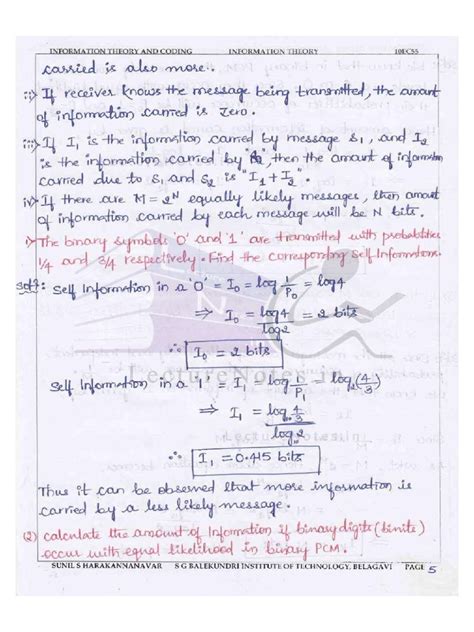 INFORMATION THEORY AND CODING INFORMATION THEORY 10EC55
carried is also more..
ii) If receiver knows the message being transmitted, the amount
of information carried is zero.
iii) If I1 is the information carried by message S1, and I2
is the information carried by S2, then the amount of information
carried due to S1 and S2 is "I1 + I2".
iv) If there are M = 2^N equally likely messages, then amount
of information carried by each message will be N bits.
1) The binary symbols '0' and '1' are transmitted with probabilities
1/4 and 3/4 respectively. Find the corresponding Self-Information.
Sol: Self Information in a '0' = I0 = log 1/P0 = log4
⇒ I0 = log4/log2 = 2 bits
∴ I0 = 2 bits
Self Information in a '1' = I1 = log 1/P1 = log2(4/3)
⇒ I1 = log 4/3 / log2
∴ I1 = 0.415 bits
Thus it can be observed that more information is
carried by a less likely message.
2) calculate the amount of Information if binary digits (binits)
occur with equal likelihood in binary PCM.
SUNIL S HARAKANNANAVAR S G BALEKUNDRI INSTITUTE OF TECHNOLOGY, BELAGAVI PAGE 5
LectureNotes.in